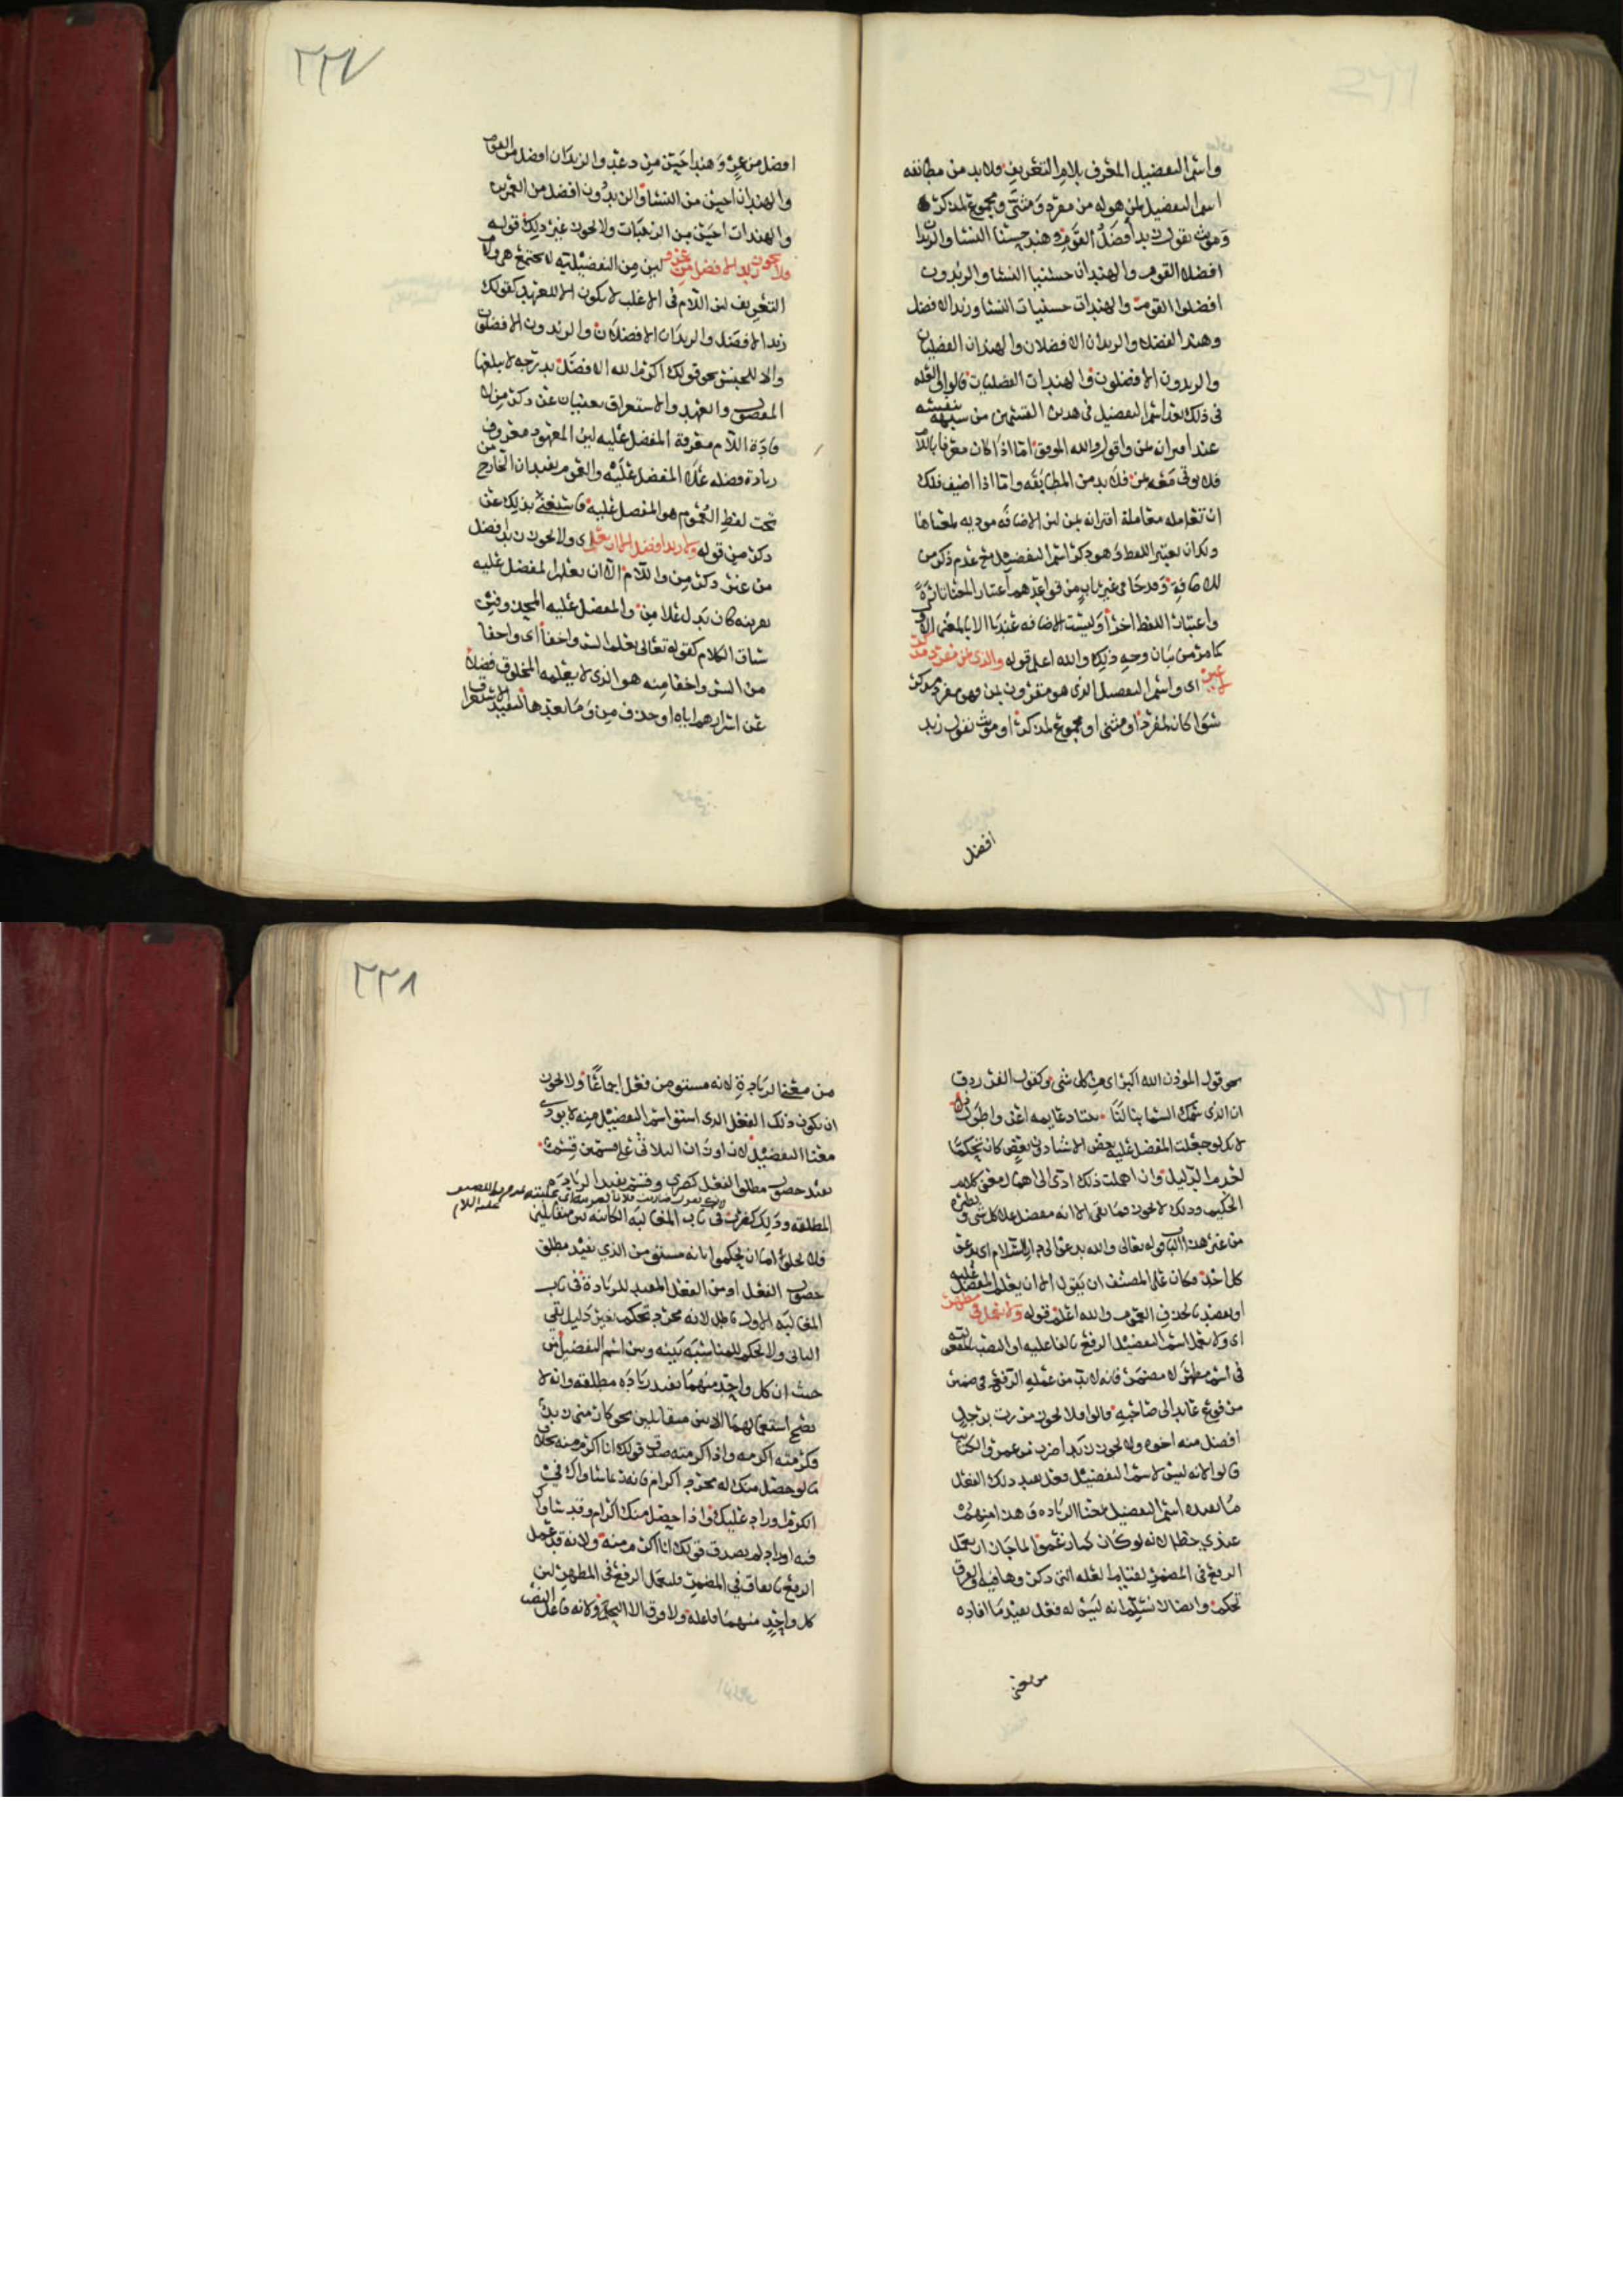 واسم التفضيل المعرف بلام التعريف ولابد من مطابقه
اسم التفضيل لمن هوله من مفرد ومثنى ومجموع لمذكر
ومونث تقول زيد افضل القوم وهند حسنا النسا والزيدا
افضلا القوم والهندان حسنيا النسا والزيدون
افضلوا القوم والهندات حسنيات النسا وزيد الافضل
وهند الفضلا والزيدان الافضلان والهندان الفضليان
والزيدون الافضلون والهندات الفضليات قالوا العله
في ذلك بعد اسم التفضيل في هدين القسمين من شبهه بنفسه
عند اقترانه بمن واقول والله الموفق اما اذا كان معرفا باللا
فلا يوتى معه بمن فلا بد من المطابقه واما اذا اضيف فلك
ان تعامله معاملة اقترانه بمن لان الاضافه موديه لمعناها
ولكان يعتبر اللفظ وهو ذكر اسم التفضيل مع عدم ذكر من
للاضافة وقد جا في غير باب من قواعدهم اعتبار المعنا تارة
واعتبار اللفظ اخرا وليست الاضافه عندنا الا بالمعنى الاول
كما مر من بيان وجه ذلك والله اعلم قوله والذي بمن مفرد مذكر
لا غير اي واسم التفضيل الذي هو مقرون بمن فهو مفرد مذكر
سوا كان لمفرد او مثنى او مجموع لمذكر او مونث تقول زيد
افضل
٢٢٧
افضل من عمرو وهند احسن من دعد والزيدان افضل من القوم
والهندان احسن من النسا والزيدون افضل من العمرين
والهندات احسن من الزينبات ولا يجوز غير ذلك قوله
ولا يجوز زيد الافضل من عمرو لان من التفضيليه لا تجتمع هي ولام
التعريف لان اللام في الاغلب لا يكون الا للعهد كقولك
زيد الافضل والزيدان الافضلان والزيدون الافضلون
والا للجنس نحو قولك اكرم الله الافضل بدرجه لا يبلغها
المفضول والعهد والاستغراق يغنيان عن ذكر من لا
فادة اللام معرفة المفضل عليه لان المعهود معروف
زيادة فضله على المفضل عليه والعموم يفيد ان الخارج من
تحت لفظ العموم هو المفضل عليه فاستغني بذلك عن
ذكر من قوله ولا زيد افضل الا ان يعلم اي ولا يجوز زيد افضل
من غير ذكر من واللام الا ان يعلم المفضل عليه
بقرينه كان بدل علا من والمفضل عليه المحذوفين
سياق الكلام كقوله تعالى يعلم السر واخفا اي واخفا
من السر واخفا منه هو الذي لا يعلمه المخلوق فضلا
عن اسرارهم اياه او حذف من وما بعدها لتفيد الاستغرا
نحو قول الموذن الله اكبر اي من كل شي وكقول الفرزدق
ان الذي سمك السما بنا لنا بيتا دعايمه اعز واطول
لانك لو جعلت المفضل عليه بعض الاشيا دون بعض كان تحكما
لعدم الدليل وان اهملت ذلك ادى الى اهمال معنى كلام
الحكيم وذلك لا يجوز فما بقي الا انه مفضل علا كل شي ونظيره
من غير هذا الباب قوله تعالى والله يدعو الى دار السلام اي يدعو
كل احد وكان على المصنف ان يقول الا ان يعلم المفضل عليه
او يقصد بالحذف العموم والله اعلم قوله ولا يعمل في مظهر
اي ولا يعمل اسم التفضيل الرفع بالفاعليه او النصب بالمفعوليه
في اسم مظهر لا مضمر فانه لا بد من عمله الرفع في ضمير
مرفوع عايد الى صاحبه قالوا فلا يجوز مررت برجل
افضل منه اخوه ولا يجوز زيد اضرب من عمرو الكتاب
قالوا لانه ليس لاسم التفضيل فعل يفيد ذلك الفعل
ما يفيده اسم التفضيل معنا الزياده وهذا منهم
عندي خطا لانه لو كان كما زعموا لما جاز ان يعمل
الرفع في المضمر لقيام العله التي ذكروها فيه والفرق
تحكم وايضا لا نسلم انه ليس له فعل يفيد ما افاده
من معنى
٢٢٨
من معنى الزيادة لانه مشتق من فعل اجماعا ولا يجوز
ان يكون ذلك الفعل الذي اشتق اسم التفضيل منه لا يودي
معنا التفضيل لان اوزان الثلاثي على قسمين قسم
يفيد حصول مطلق الفعل كضرب وقسم يفيد الزيادة
المطلقه وذلك كضرب في باب المغالبه الكاينه بين متقابلين
فلا يخلوا اما ان يحكموا بانه مشتق من الذي يفيد مطلق
حصول الفعل او من الفعل المفيد للزيادة في باب
المغالبه الاول باطل لانه مجرد تحكم بغير دليل بقي
الثاني ولا يحكم للمناسبه بينه وبين اسم التفضيل من
حيث ان كل واحد منهما يفيد زياده مطلقه وانه لا
يصح استعمالهما الا بين متقابلين نحو كارمني زيد
فكرمته اكرمه واذا كرمته صدق قولك انا اكرم منه بخلاف
ما لو حصل منك له مجرد اكرام فانه قد ساواك في
الكرم او زاد عليك واذا حصل منك اكرام وقد ساواك
فيه او زاد لم يصدق قولك انا اكرم منه ولانه قد عمل
الرفع باتفاق في المضمر فليعمل الرفع في المظهر لان
كل واحد منهما فاعله ولا فرق الا التحكم ولانه فاعل النصب